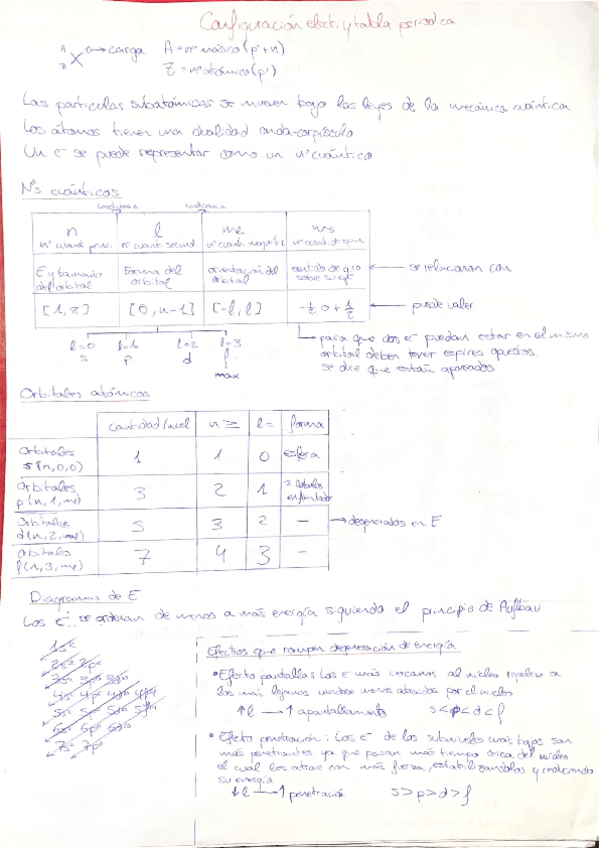 Configuración elect. y tabla periodica
A Z X n → carga A = nº másico (p⁺ + n)
Z = nº atómico (p⁺)
Las particulas subatómicas se mueven bajo las leyes de la mecánica cuántica
Los átomos tienen una dualidad onda-corpúsculo
Un e⁻ se puede representar como un nº cuántico
Nºs cuánticos
n l ml ms
nº cuant princ. nº cuanti. secund nº cuanti. magnétic nº cuant. de spin
E y tamaño del orbital Forma del orbital orientación del orbital sentido de giro sobre su eje ← se relacionan con
[1, 8] [0, n-1] [-l, l] -½ o +½ ← puede valer
l=0 l=1 l=2 l=3
s p d f
max
para que dos e⁻ puedan estar en el mismo
orbital deben tener espines opuestos
se dice que están apareados
Orbitales atómicos
cantidad/nivel n ≥ l = forma
Orbitales s (n,0,0) 1 1 0 esfera
Orbitales p (n,1,ml) 3 2 1 2 lóbulos
Orbitales d (n,2,ml) 5 3 2 — → degenerados en E
Orbitales f (n,3,ml) 7 4 3 —
Diagramas de E
Los e⁻ se ordenan de menos a más energía siguiendo el principio de Aufbau
1s²
2s² 2p⁶
3s² 3p⁶ 3d¹⁰
4s² 4p⁶ 4d¹⁰ 4f¹⁴
5s² 5p⁶ 5d¹⁰ 5f¹⁴
6s² 6p⁶ 6d¹⁰
7s² 7p⁶
Efectos que rompen degeneración de energía
• Efecto pantalla: Los e⁻ más cercanos al núcleo repelen a
los más lejanos viendose menos atraidos por el núcleo
↑l → ↑ apantallamiento s < p < d < f
• Efecto penetración: Los e⁻ de los subniveles más bajos son
más penetrantes ya que pasan más tiempo cerca del núcleo
el cual los atrae con más fuerza, estabilizandolos y reduciendo
su energía
↓l → ↑ penetración s > p > d > f